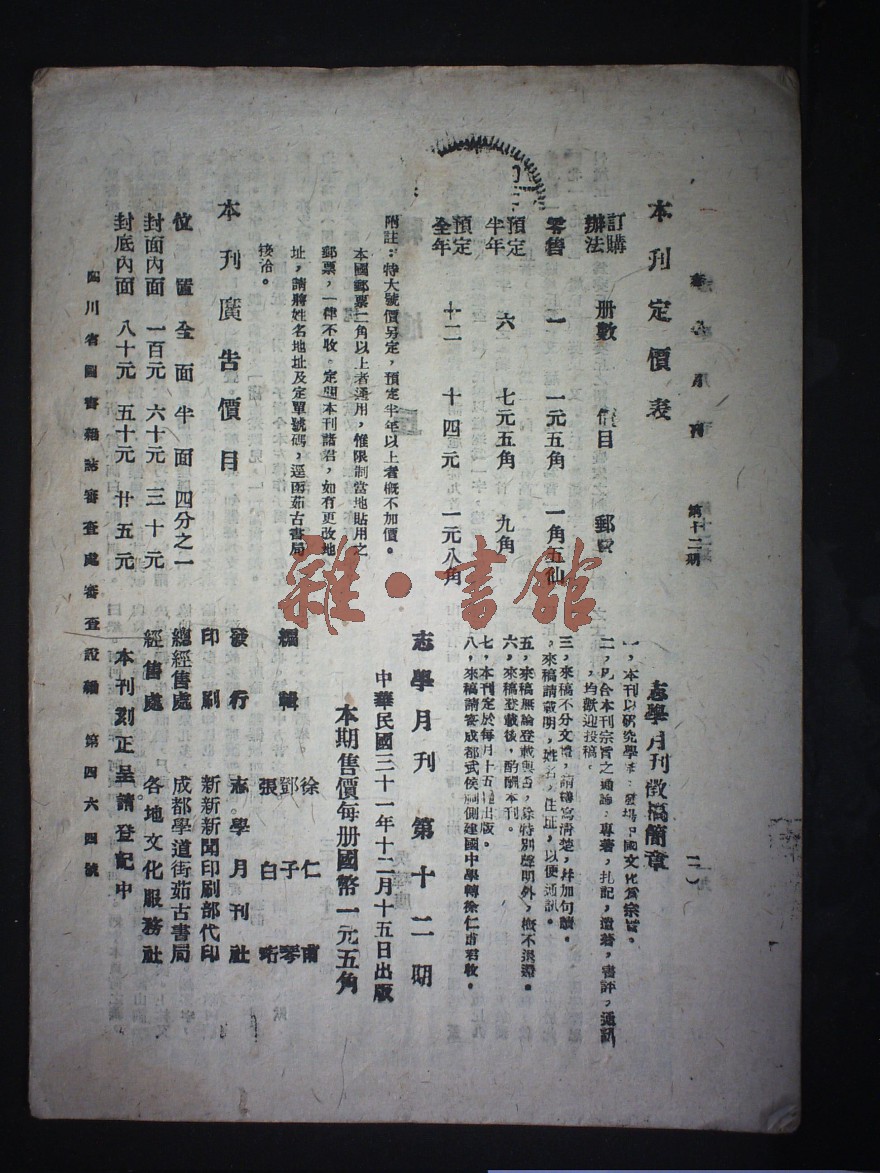 志學月刊
第十二期
本刊定價表
訂購辦法 册數 價目 郵費
零售 一 一元五角 一角五仙
預定半年 六 七元五角 九角
預定全年 十二 十四元 一元八角
附註：特大號價另定，預定半年以上者概不加價。
本國郵票二角以上者通用，惟限制當地貼用之
郵票，一律不收。定閱本刊諸君，如有更改地
址，請將姓名地址及定單號碼，逕函茹古書局
接洽。
本刊廣告價目
位置 全面 半面 四分之一
封面內面 一百元 六十元 三十元
封底內面 八十元 五十元 廿五元
四川省圖書雜誌審查處審查證 第四六四號
志學月刊徵稿簡章
一，本刊以研究學術，發揚中國文化爲宗旨。
二，凡合本刊宗旨之通論，專著，札記，遺著，書評，通訊
，均歡迎投稿。
三，來稿不分文體，請繕寫清楚，幷加句讀。
，來稿請載明，姓名，住址，以便通訊。
五，來稿無論登載與否，除特別聲明外，概不退還。
六，來稿登載後，酌酬本刊。
七，本刊定於每月十五日出版。
八，來稿請寄成都武侯祠側建國中學轉徐仁甫君收。
志學月刊 第十二期
中華民國三十一年十二月十五日出版
本期售價每册國幣一元五角
編輯 徐仁甫
鄧子琴
張白珩
發行 志學月刊社
印刷 新新新聞印刷部代印
總經售處 成都學道街茹古書局
經售處 各地文化服務社
本刊刻正呈請登記中
雜·書館